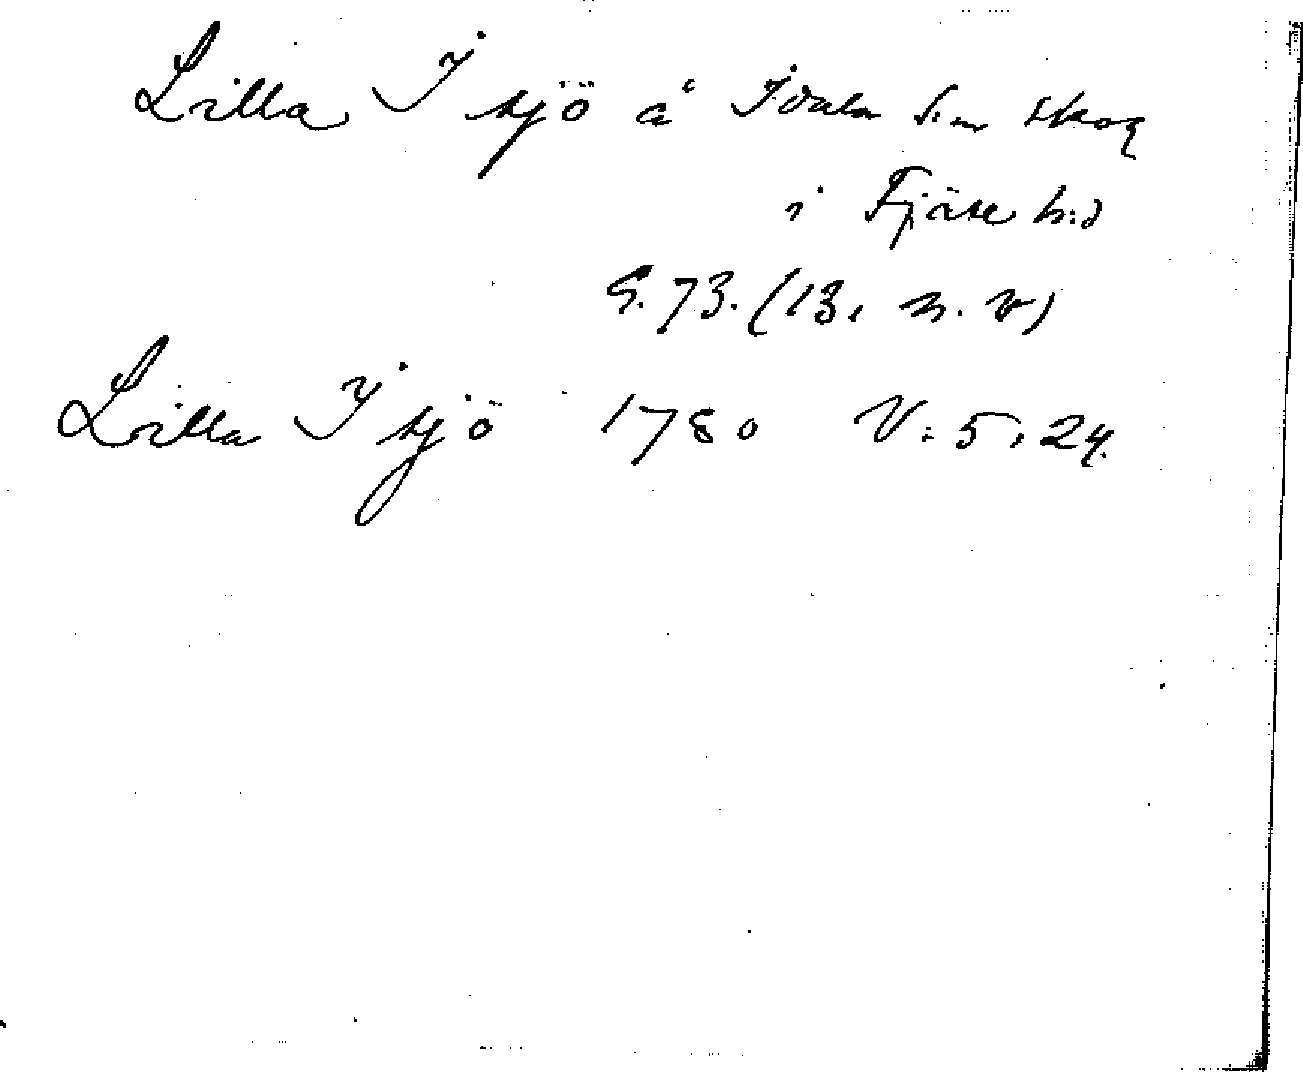 Lilla I sjö å Idala s:n skog
i Fjäre h:d
G. 73. (13, n. v)
Lilla I sjö 1780 V: 5, 24.